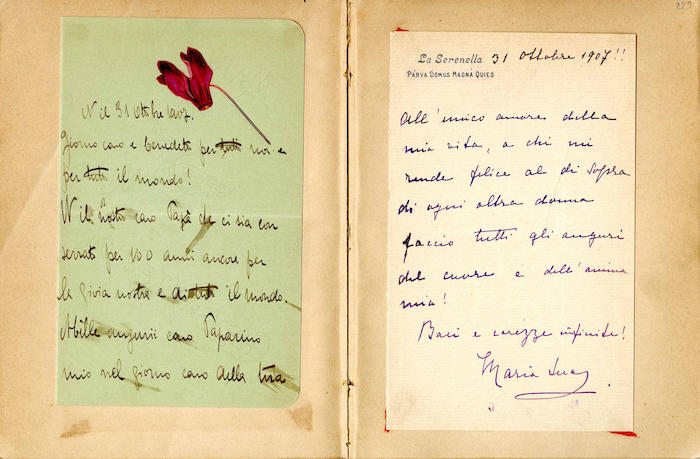 W il 31 Ottobre 1907.
Giorno caro e benedetto per tutti noi e
per tutto il mondo!
W il nostro caro Papà che ci sia con
servato per 100 anni ancora per
la gioia nostra e di tutto il mondo.
Mille augurii caro Paparino
mio nel giorno caro della tua
229
La Serenella 31 Ottobre 1907!!
PARVA DOMUS MAGNA QUIES
All'unico amore della
mia vita, a chi mi
rende felice al di sopra
di ogni altra donna
faccio tutti gli auguri
del cuore e dell'anima
mia!
Baci e carezze infinite!
Maria tua